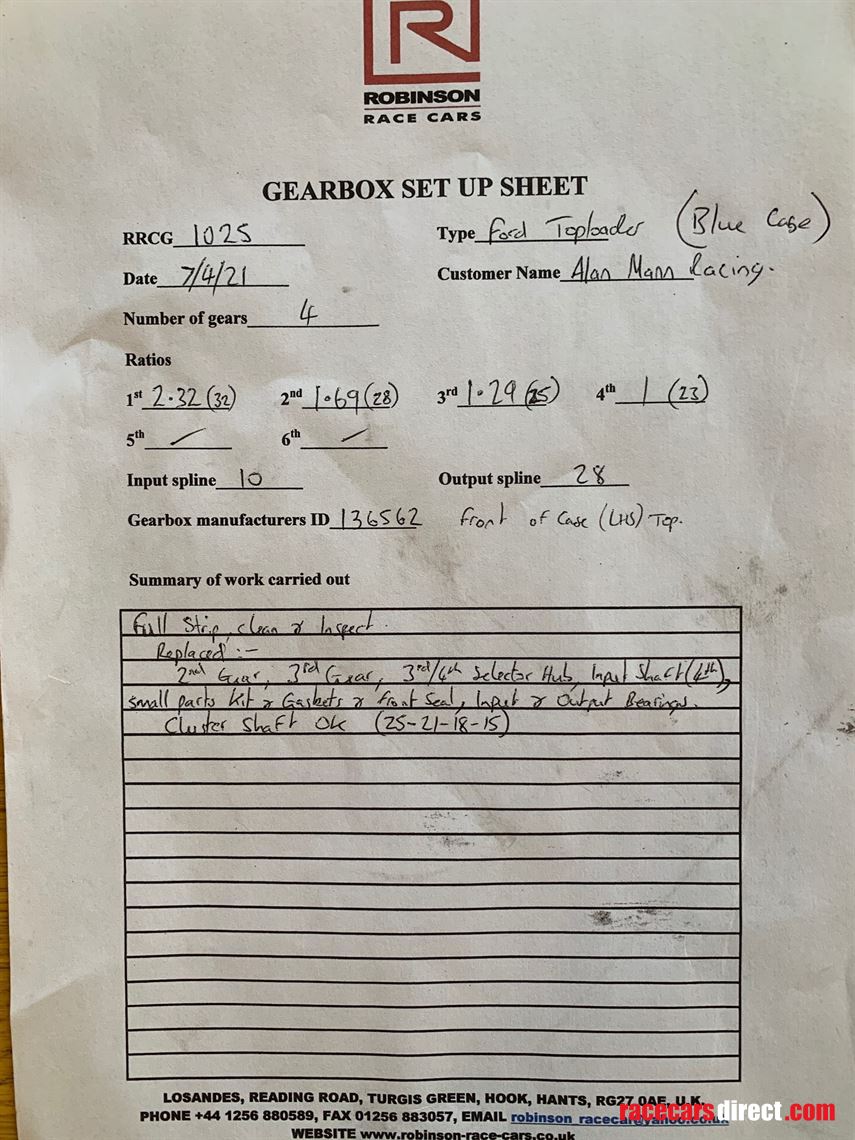 R
ROBINSON
RACE CARS
GEARBOX SET UP SHEET
RRCG 1025 Type Ford Toploader (Blue Case)
Date 7/4/21 Customer Name Alan Mann Racing.
Number of gears 4
Ratios
1st 2.32 (32) 2nd 1.69 (28) 3rd 1.29 (25) 4th 1 (23)
5th / 6th /
Input spline 10 Output spline 28
Gearbox manufacturers ID 136562 front of Case (LHS) Top.
Summary of work carried out
Full Strip, clean & Inspect.
Replaced :-
2nd Gear, 3rd Gear, 3rd/4th Selector Hub, Input Shaft (4th),
small parts Kit & Gaskets & front Seal, Input & Output Bearings.
Cluster Shaft Ok (25-21-18-15)
LOSANDES, READING ROAD, TURGIS GREEN, HOOK, HANTS, RG27 0AE, U.K.
PHONE +44 1256 880589, FAX 01256 883057, EMAIL robinson_racecar@yahoo.co.uk
racecarsdirect.com
WEBSITE www.robinson-race-cars.co.uk